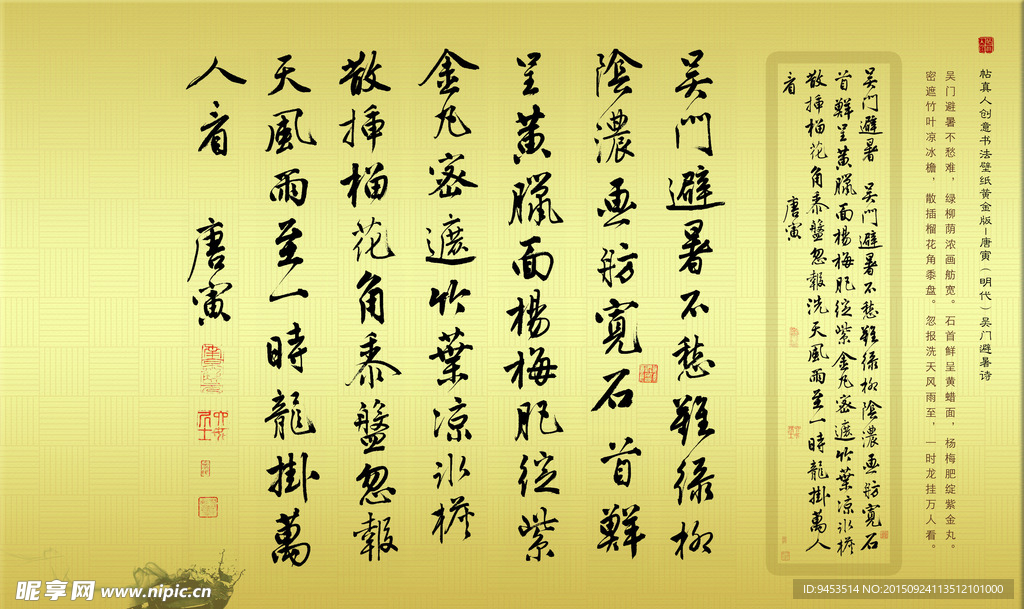 帖真人创意书法壁纸黄金版—唐寅（明代）吴门避暑诗
吴门避暑不愁难，绿柳荫浓画舫宽。石首鲜呈黄蜡面，杨梅肥绽紫金丸。
密遮竹叶凉冰檐，散插榴花角黍盘。忽报洗天风雨至，一时龙挂万人看。
吴門避暑 吴門避暑不愁難綠柳陰濃画舫寬石
首鮮呈黃臘面楊梅肥綻紫金丸密遮竹葉凉氷檐
散揷榴花角黍盤忽報洗天風雨至一時龍掛萬人
看 唐寅
吴門避暑不愁難綠柳
陰濃画舫寬石首鮮
呈黃臘面楊梅肥綻紫
金丸密遮竹葉凉氷檐
散揷榴花角黍盤忽報
天風雨至一時龍掛萬
人看 唐寅
昵享网 www.nipic.cn
ID:9453514 NO:20150924113512101000